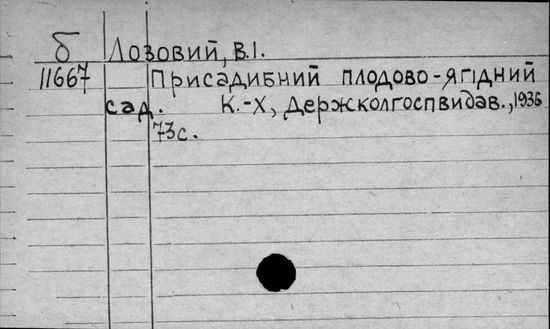 б Лозовий, В.І.
11667 Присадибний плодово-ягідний
сад. К.-Х, Держколгоспвидав., 1936
73с.